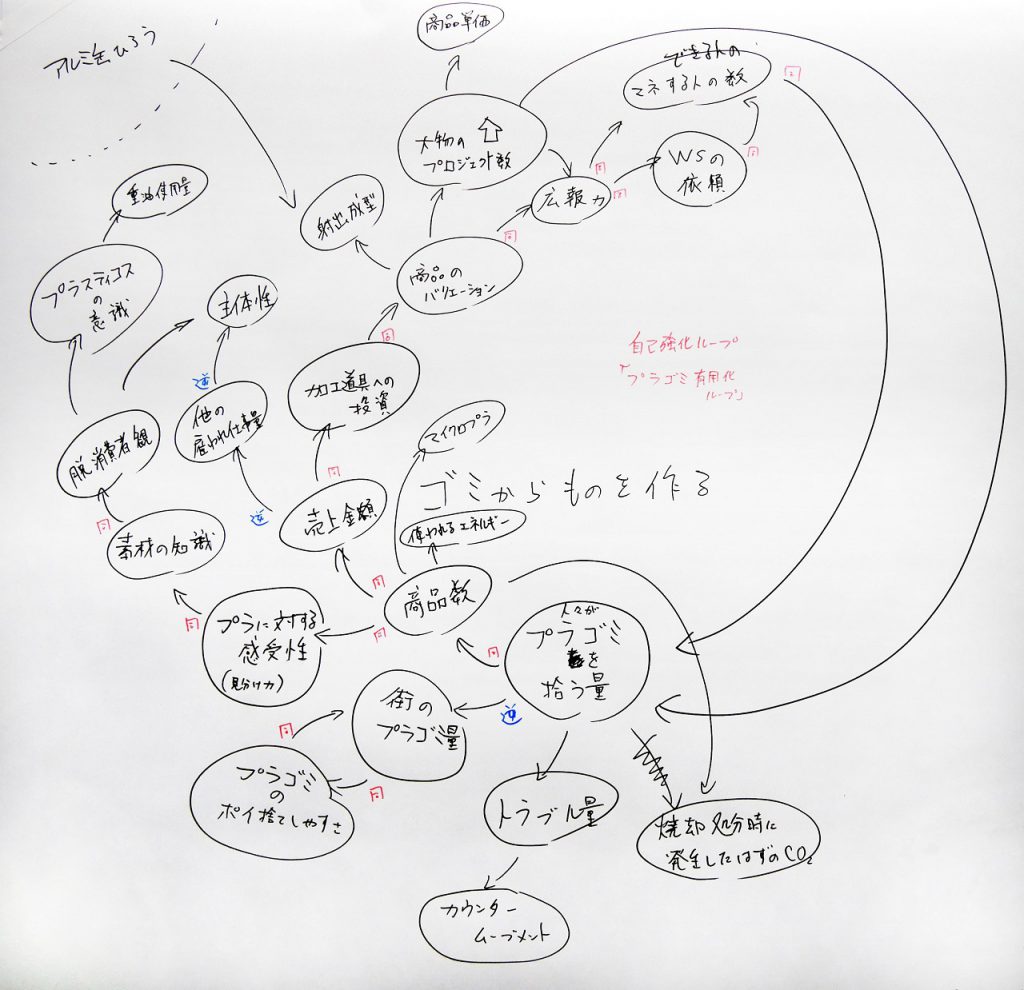 商品単価
アルミ缶ひろう
できる人の
マネする人の数
大物の
プロジェクト数
同
同
WSの
依頼
同
重油使用量
広報力
同
同
射出成型
同
プラスティコス
の
意識
商品の
バリエーション
主体性
自己強化ループ
「プラゴミ有用化
ループ」
同
逆
加工道具への
投資
他の
雇われ仕事量
マイクロプラ
脱消費者観
同
ゴミからものを作る
売上金額
逆
同
使われるエネルギー
素材の知識
同
商品数
人々が
プラゴミ
を
拾う量
同
同
同
プラに対する
感受性
(見分け力)
街の
プラゴミ量
逆
同
プラゴミ
の
ポイ捨てしやすさ
同
トラブル量
焼却処分時に
発生したはずのCO2
カウンター
ムーブメント